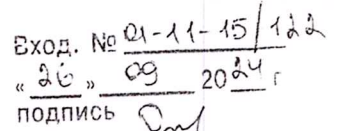 Вход. № 01-11-15/122
« 26 » 09 2024 г
подпись